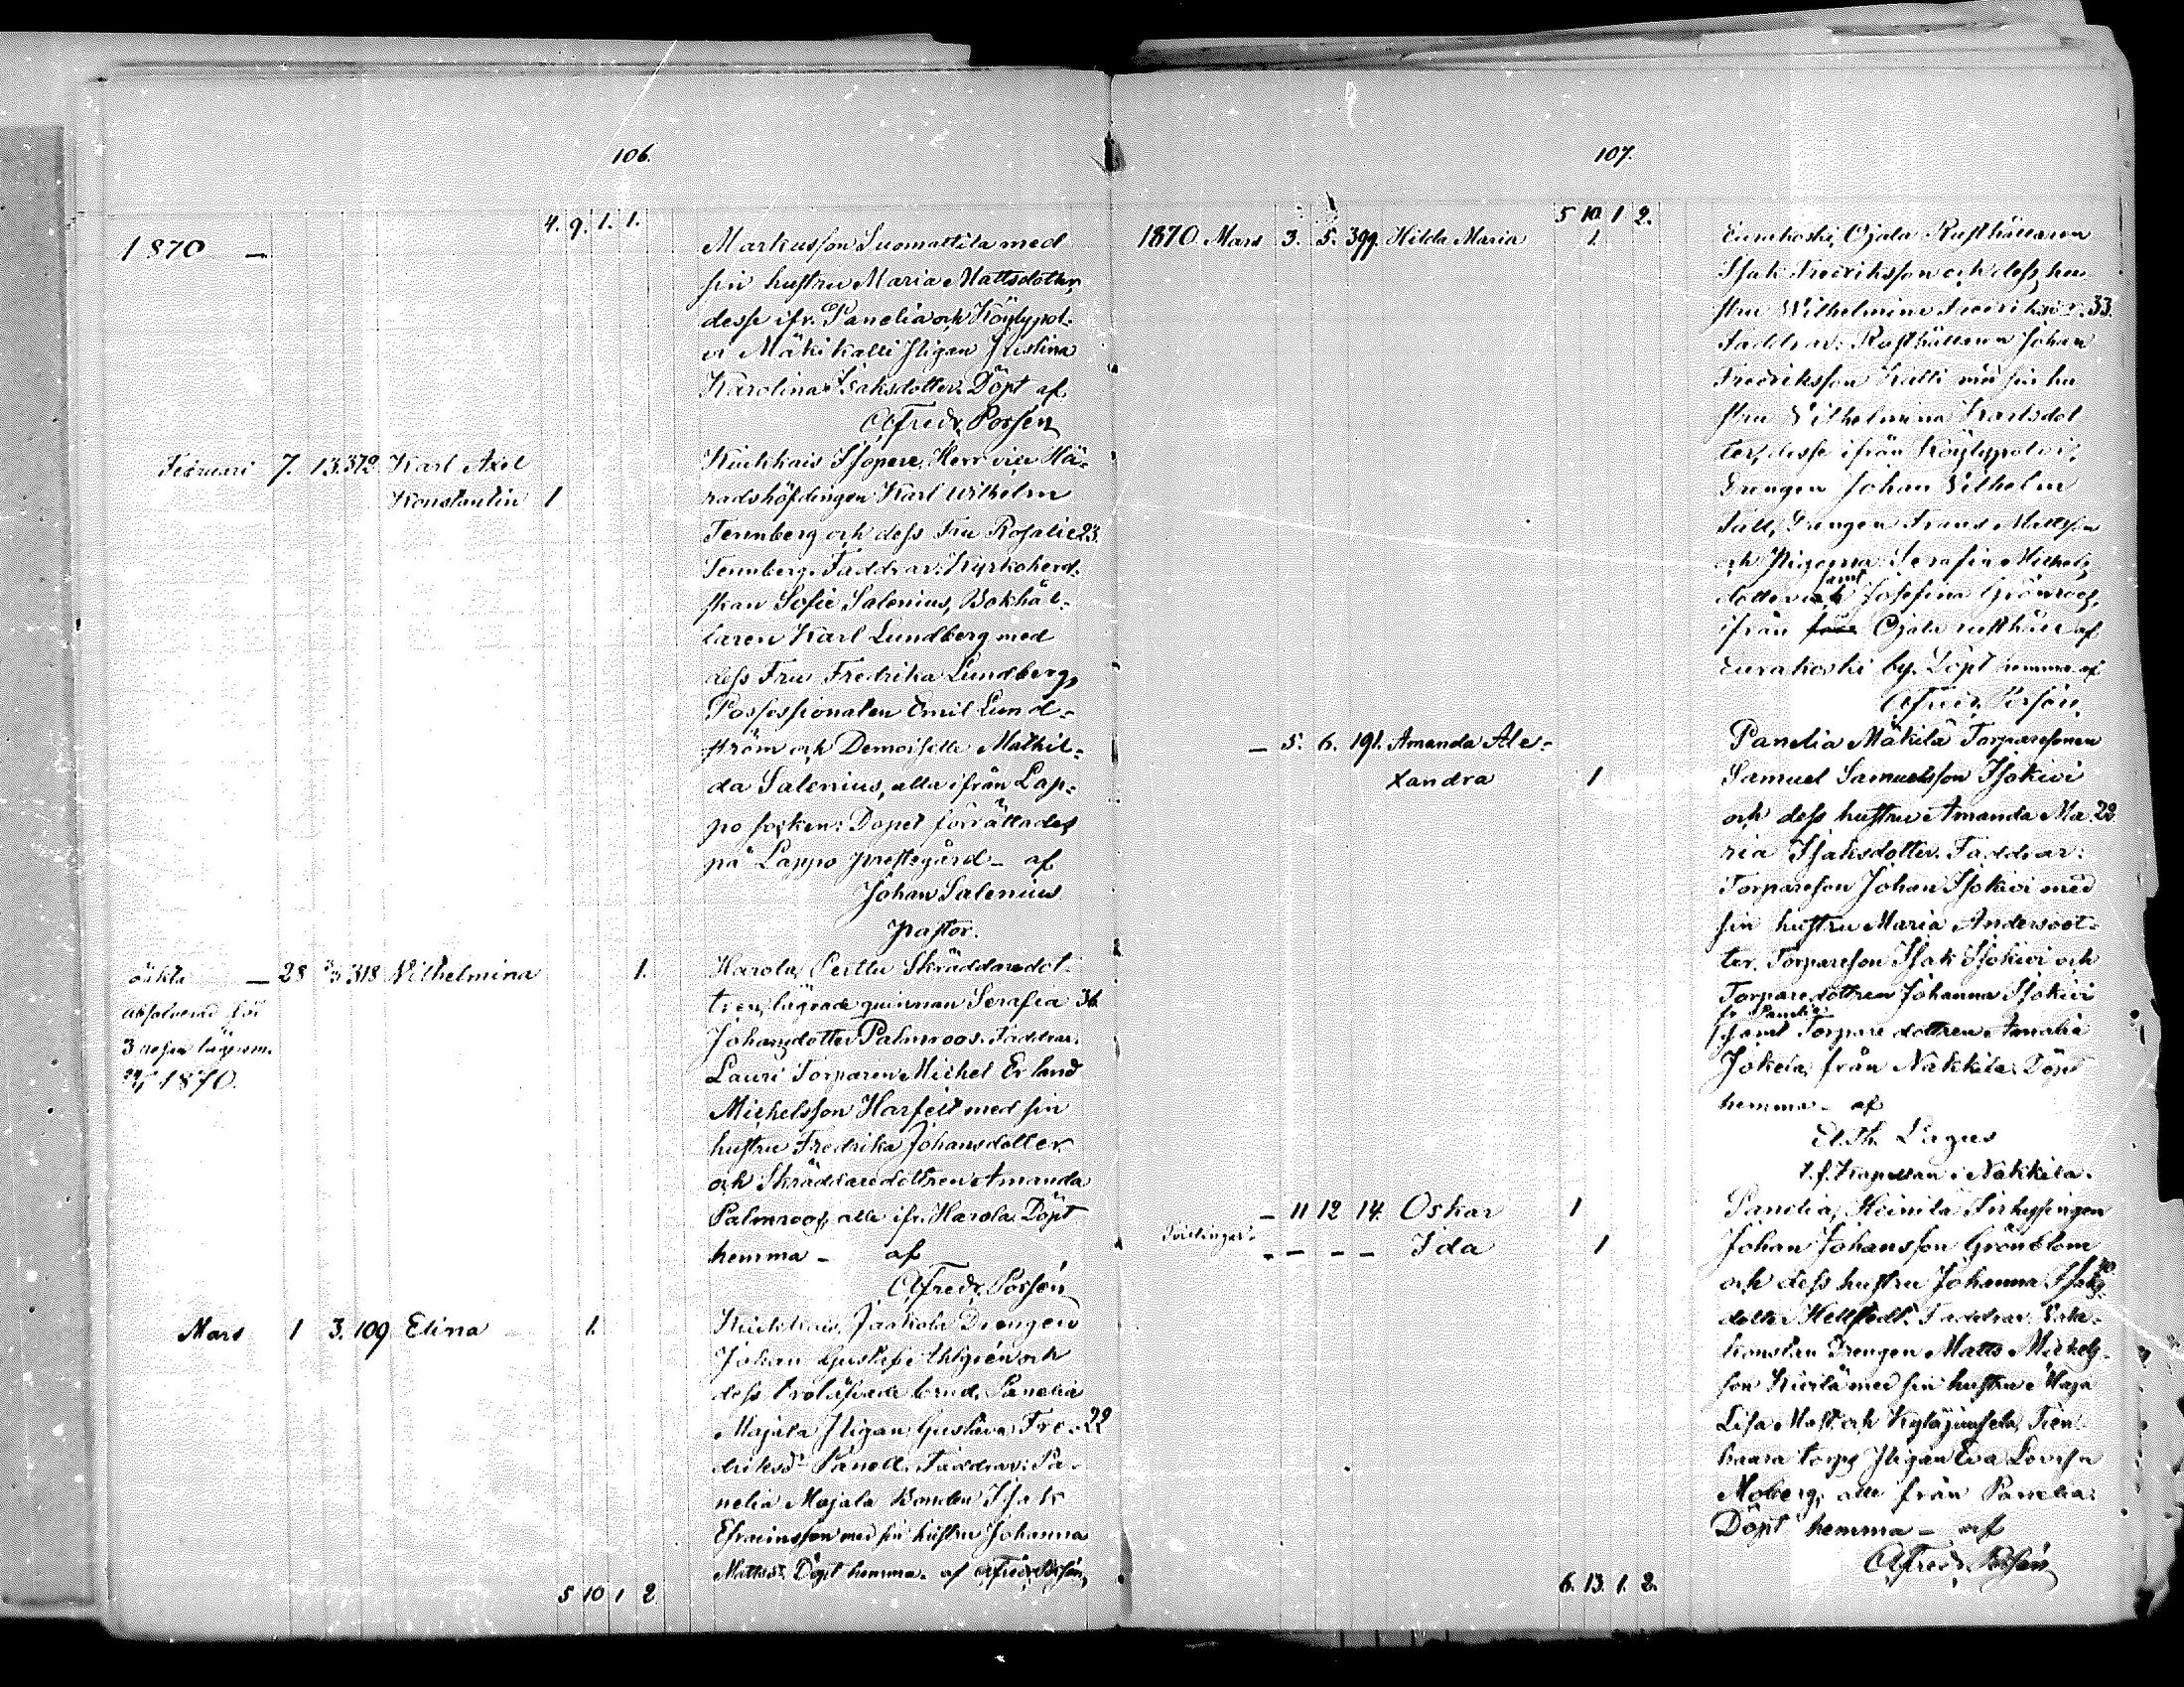 106.
4. 9. 1. 1.
1870 — Markusson Suomattila med
sin hustru Maria Mattsdotter,
desse ifr. Panelia och Köylypol-
vi Mäki Kalli Pigan Justina
Karolina Isaksdotter. Döpt af
Alfredr. Porsén
Februari 7. 13. 372 Karl Axel Kiukkais Isopere, Herr vice Hä-
Konstantin 1 radshöfdingen Karl Wilhelm
Tennberg och dess Fru Rosalie 23.
Tennberg. Faddrar: Kyrkoherd-
skan Sofie Salenius, Bokhål-
laren Karl Lundberg med
dess Fru Fredrika Lundberg,
Possessionaten Emil Lund-
ström och Demoiselle Mathil-
da Salenius, alla ifrån Lap-
po socken. Dopet förrättades
på Lappo prestegård – af
Johan Salenius
pastor.
oäkta — 28 3/3 318 Wilhelmina 1. Harola, Perttu Skräddaredot-
absolverad för tren, lägrade quinnan Serafia 36
3 resan lägersm. Johansdotter Palmroos. Faddrar:
1870. Lauri Torparen Michel Erland
Michelsson Harfelt med sin
hustru Fredrika Johansdotter
och Skräddaredottren Amanda
Palmroos, alle ifr. Harola. Döpt
hemma – af
Alfredr. Porsén
Mars 1 3. 109 Elina 1. Kiukkais, Jaakola Drengen
Johan Gustaf Ahlgrén och
dess trolofvade brud, Panelia
Majala Pigan Gustava Fre- 22
driksdr Panell. Faddrar: Pa-
nelia Majala Bonden Isak
Efraimsson med sin hustru Johanna
Mattsdr. Döpt hemma. af Alfredr. Porsén
5 10 1 2
107.
5 10 1 2.
1870 Mars 3. 5. 399. Hilda Maria 1. Eurakoski, Ojala Rusthållaren
Isak Fredriksson och dess hu-
stru Wilhelmina Fredriksdr. 33.
Faddrar: Rusthållaren Johan
Fredriksson Kalli med sin hu
stru Wilhelmina Karlsdot
ter, desse ifrån Köylypolvi,
Drengen Johan Wilhelm
Drengen Frans Mattsson
och Pigorna Serafia Michels
samt
dotter och Josefina Grönroos,
ifrån Ojala rusthåll af
Eurakoski by. Döpt hemma af
Alfredr. Porsén.
— 5. 6. 191. Amanda Ale- Panelia Mäkilä Torparesonen
xandra 1 Samuel Samuelsson Isokivi
och dess hustru Amanda Ma 22
ria Isaksdotter. Faddrar:
Torpareson Johan Isokivi med
sin hustru Maria Andersdot-
ter, Torpareson Isak Isokivi och
Torparedottren Johanna Isokivi
fr Panelia
samt Torpare dottren Amalia
Jokela, från Nakkila. Döpt
hemma – af
El. Th. Lagus
t. f. Kapellan i Nakkila.
— 11 12 14. Oskar 1 Panelia, Heinilä Inhysingen
Tvillingar. — — — — Ida 1 Johan Johansson Grönblom
och dess hustru Johanna Isaks 40
dotter Hellstedt. Faddrar:
Drengen Matts Michels-
son med sin hustru Maja
Lisa
torps Pigan Eva Lovisa
Moberg, alle från Panelia.
Döpt hemma – af
Alfredr. Porsén
6. 13. 1. 2.